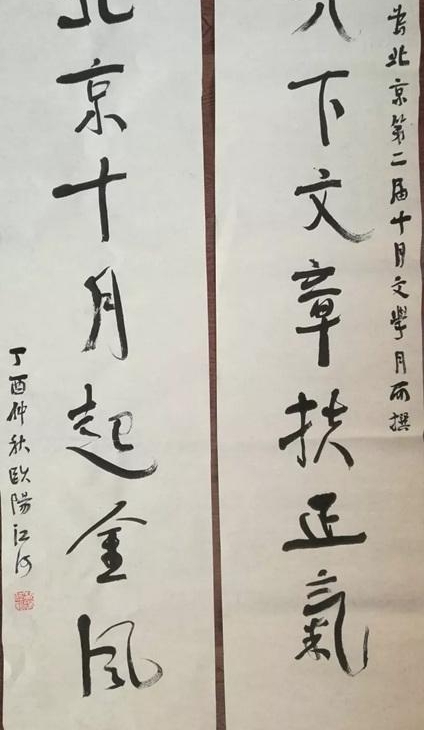 北京第二届十月文學月而撰
下文章扶正氣
北京十月起金风
丁酉仲秋欧陽江河